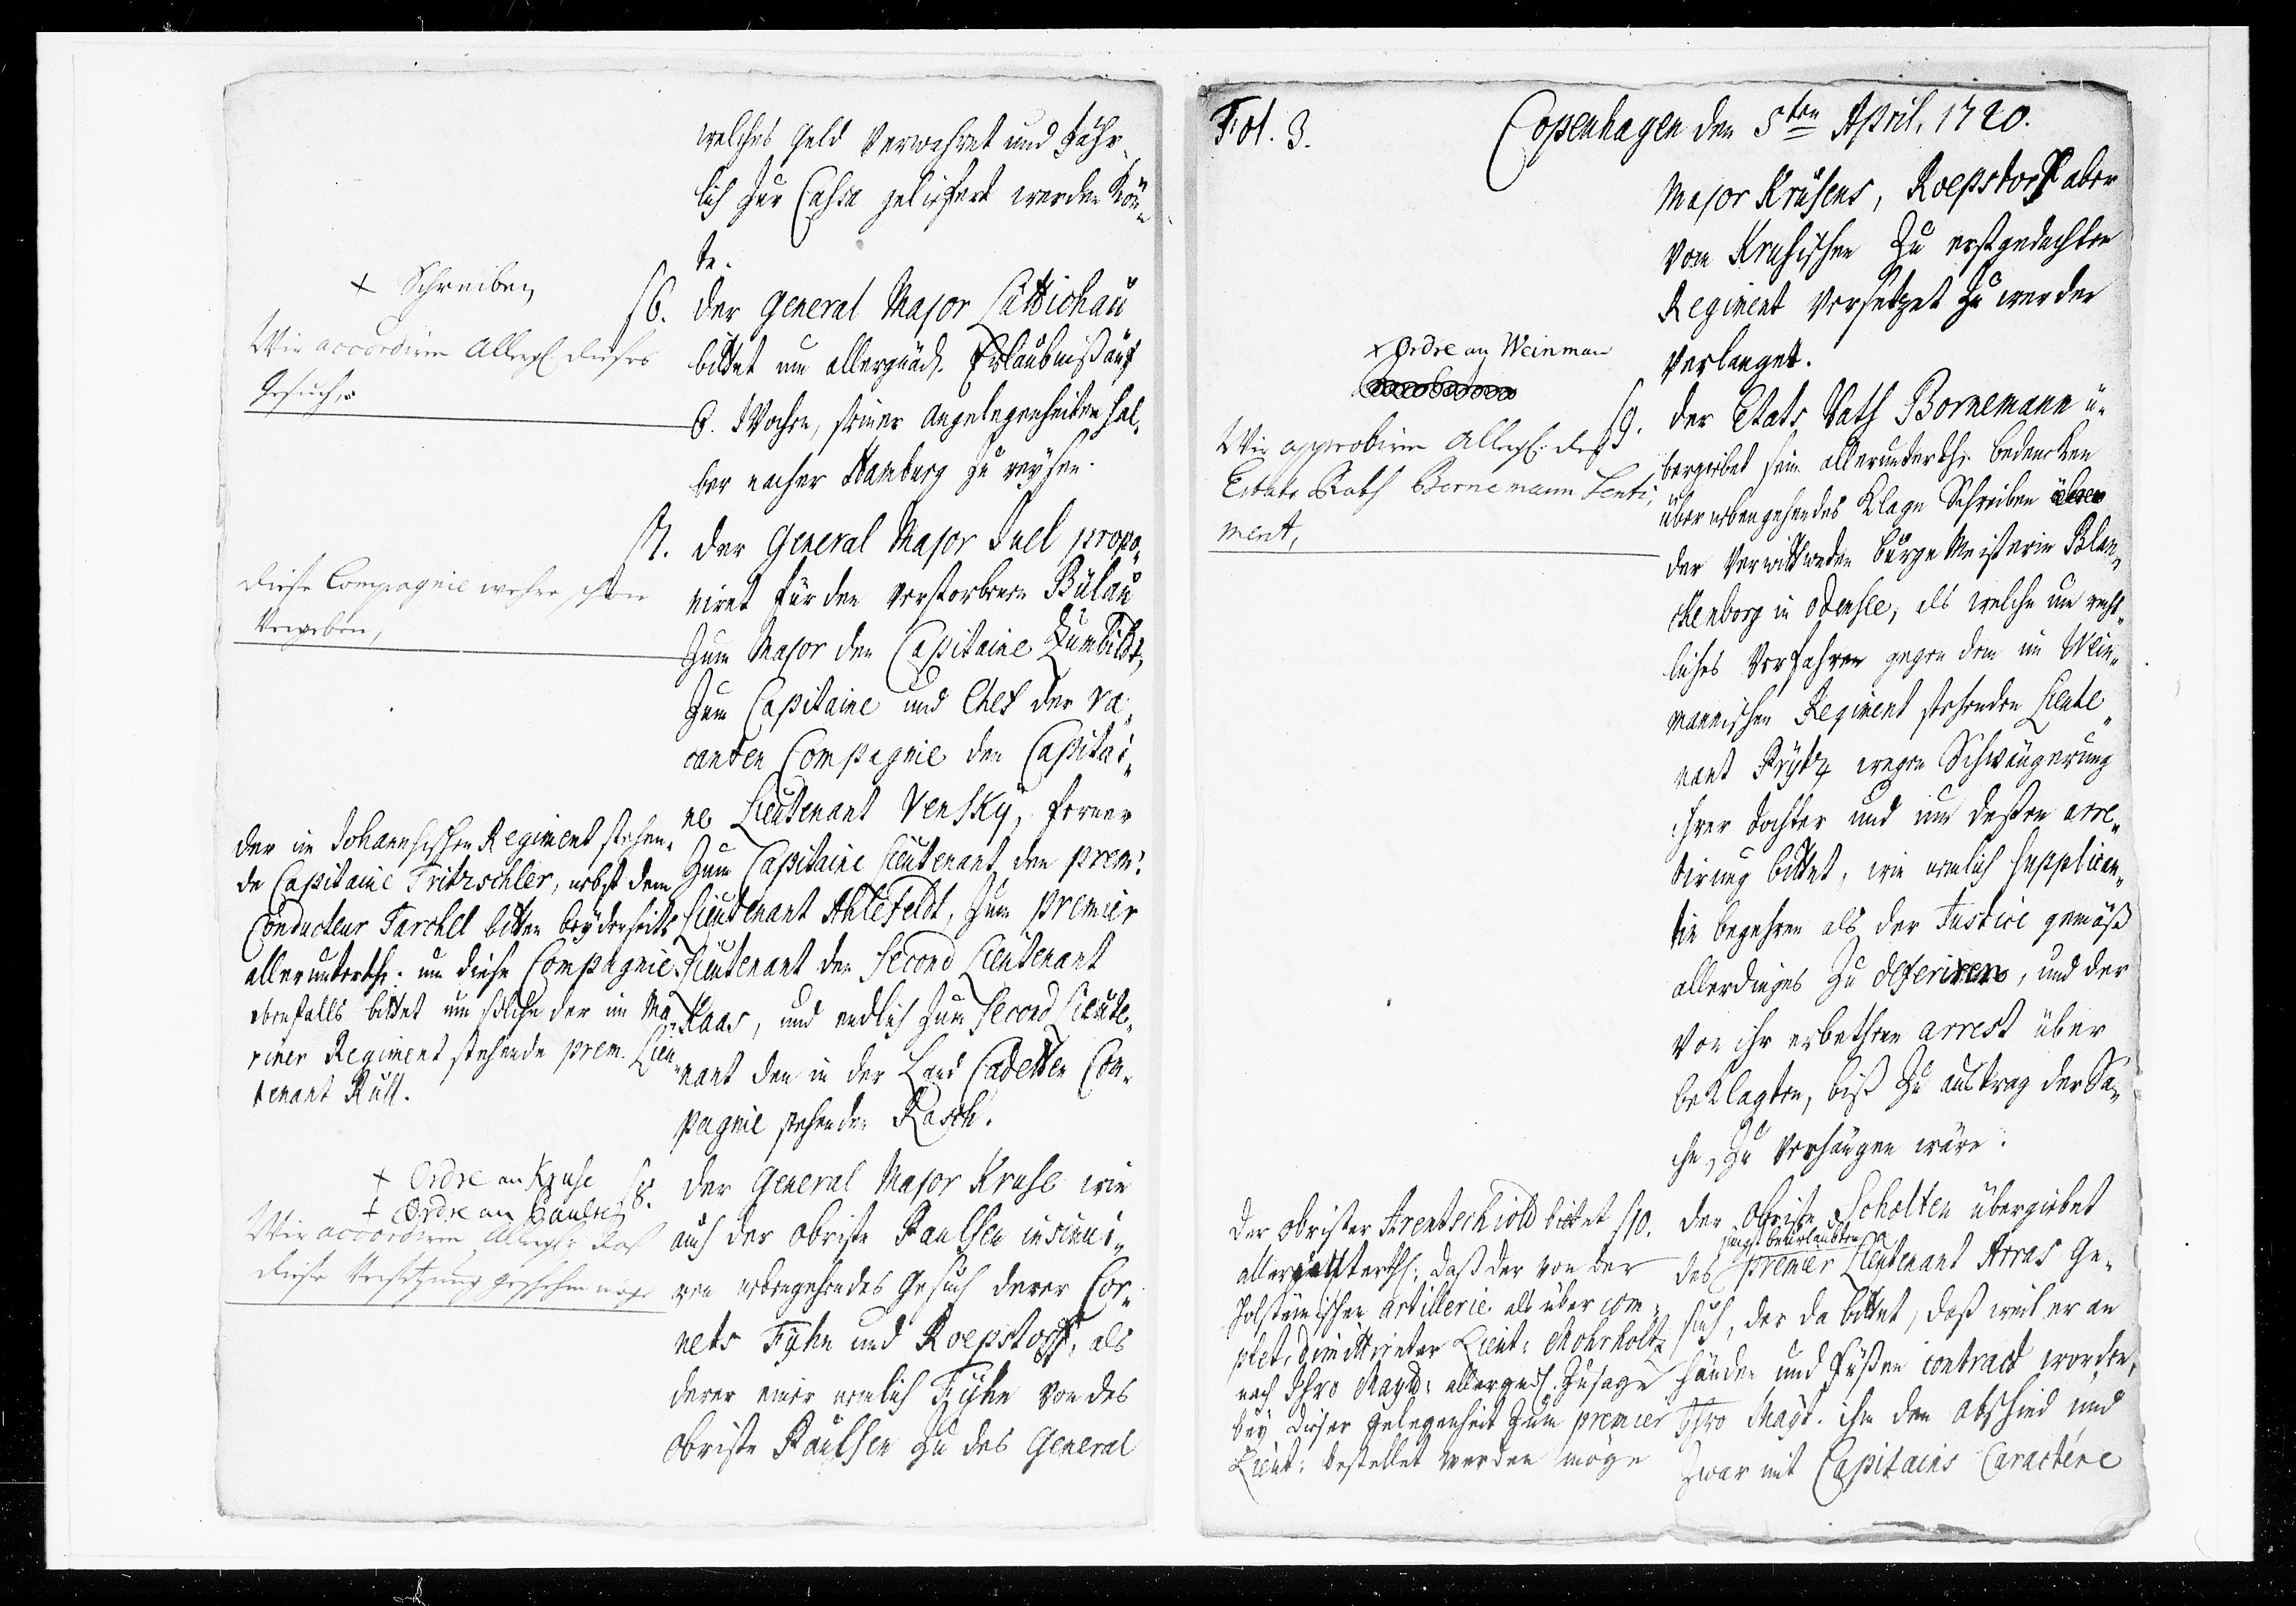 welches Geld verwahret und Jähr¬
lich zur Cassa geliefert werden kön¬
te.
+ Schreiben
Wir accordiren Allergl dieses
Gesuch,
6. der General Major Lüttichau
bittet um allergnäd. Erlaubniß auf
6. Wochen, seiner Angelegenheiten hal¬
ber nacher Hamburg zu reysen.
diese Compagnie wehre schon
Vergeben,
7. der General Major Juel propo¬
niret für den verstorbenen Bülau
zum Major den Capitaine Zumbildt,
zum Capitaine und Chef der va¬
canten Compagnie den Capitai¬
ne Lieutenant Vensky, ferner
zum Capitaine Lieutenant den prem:
Lieutenant Ahlefeldt, zum premier
Lieutenant den Second Lieutenant
Kaas, und endlich zum Second Lieute¬
nant den in der Land Cadetten Com¬
pagnie stehenden Rasch.
der im Johannsischen Regiment stehen¬
de Capitaine Fritzschler, nebst dem
Conducteur Tarchel bitten beyderseits
allerunterth: um diese Compagnie
ebenfalls bittet um solche der im Ma¬
riner Regiment stehende prem. Lieu¬
tenant Rull.
+ Ordre an Kruse
+ Ordre an Paulsen
Wir accordiren Allergl: daß
diese Versetzung geschehen möge
8. der General Major Kruse wie
auch der Obriste Paulsen insinui¬
ren nebengehendes Gesuch derer Cor¬
nets Fyhn und Roepstorff, als
derer einer nemlich Fyhn von des
Obriste Paulsen zu des General
Fol. 3.
Copenhagen den 5ten April, 1720.
Major Krusens, Roepstorff aber
vom Krusischen zu erstgedachten
Regiment versetzet zu werden
verlanget.
+ Ordre an Weinman
Wir approbiren Allergl. des
Etats Rath Bornemann Senti¬
ment,
9. der Etats Rath Bornemann ü¬
bergiebet sein allerunterth. bedencken
über nebengehendes Klage Schreiben
der verwittweten bürge Meisterin Blan¬
ckenborg in Odensee, als welche um recht¬
liches Verfahren gegen dem im Wein¬
mannischen Regiment stehenden Lieute¬
nant Prytz wegen Schwängerung
ihrer Tochter und um deßen arre¬
tirung bittet, wie nemlich supplican¬
tin begehren als der Justice gemäß
allerdinges zu deferiren, und der
von ihr erbethene arrest über
beklagten, biß zu austrag der Sa¬
che, zu verhängen wäre.
Der Obrister Arentschiold bittet
allerunterth: daß der von der
Holsteinischen Artillerie als über com¬
plet, dimittirter Lieut: Mohrholtz
nach Ihro Mayt: allergndl. Zusage
bey dieser Gelegenheit zum premier
Lieut: bestellet werden möge
10. der Obriste Scholten übergiebet
des jüngst beurlaubten premier Lieutenant Arras Ge¬
such, der da bittet, daß weil er an
Händen und Füßen contract worden,
Ihro Mayt. ihm den Abschied und
zwar mit Capitains Caractére